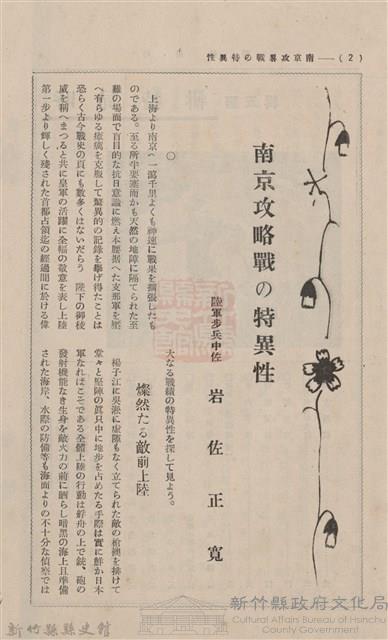 (2)——南京攻略戰の特異性
南京攻略戰の特異性
陸軍步兵中佐 岩佐正寬
○
上海より南京へ一瀉千里よくも神速に戰果を擴張したも
のである。至る所半要塞而かも天然の地障に隔てられた至
難の場面で盲目的な抗日意識に燃え本腰据へた支那軍を壓
へ有らゆる瘡痍を克服して驚異的の記錄を擧げ得たことは
恐らく古今戰史の頁にも數多くはないだらう 陛下の御稜
威を稱へまつると共に皇軍の活躍に全幅の敬意を表し上陸
第一步より輝しく殘された首都占領迄の經過間に於ける偉
大なる戰績の特異性を探して見よう。
燦然たる敵前上陸
楊子江に吳淞に虛隙もなく立てられた敵の槍襖を排けて
堂々と堅陣の眞只中に地步を占めたる手際は實に鮮か日本
軍なればこそである全體上陸の行動は艀舟の上で銃、砲の
發射機能なき生身を敵火力の前に晒らし暗黑の海上且準備
された海岸、水際の防備等も海面よりの不十分な偵察では
新竹縣縣史館
新竹縣政府文化局
Cultural Affairs Bureau of Hsinchu
County Government